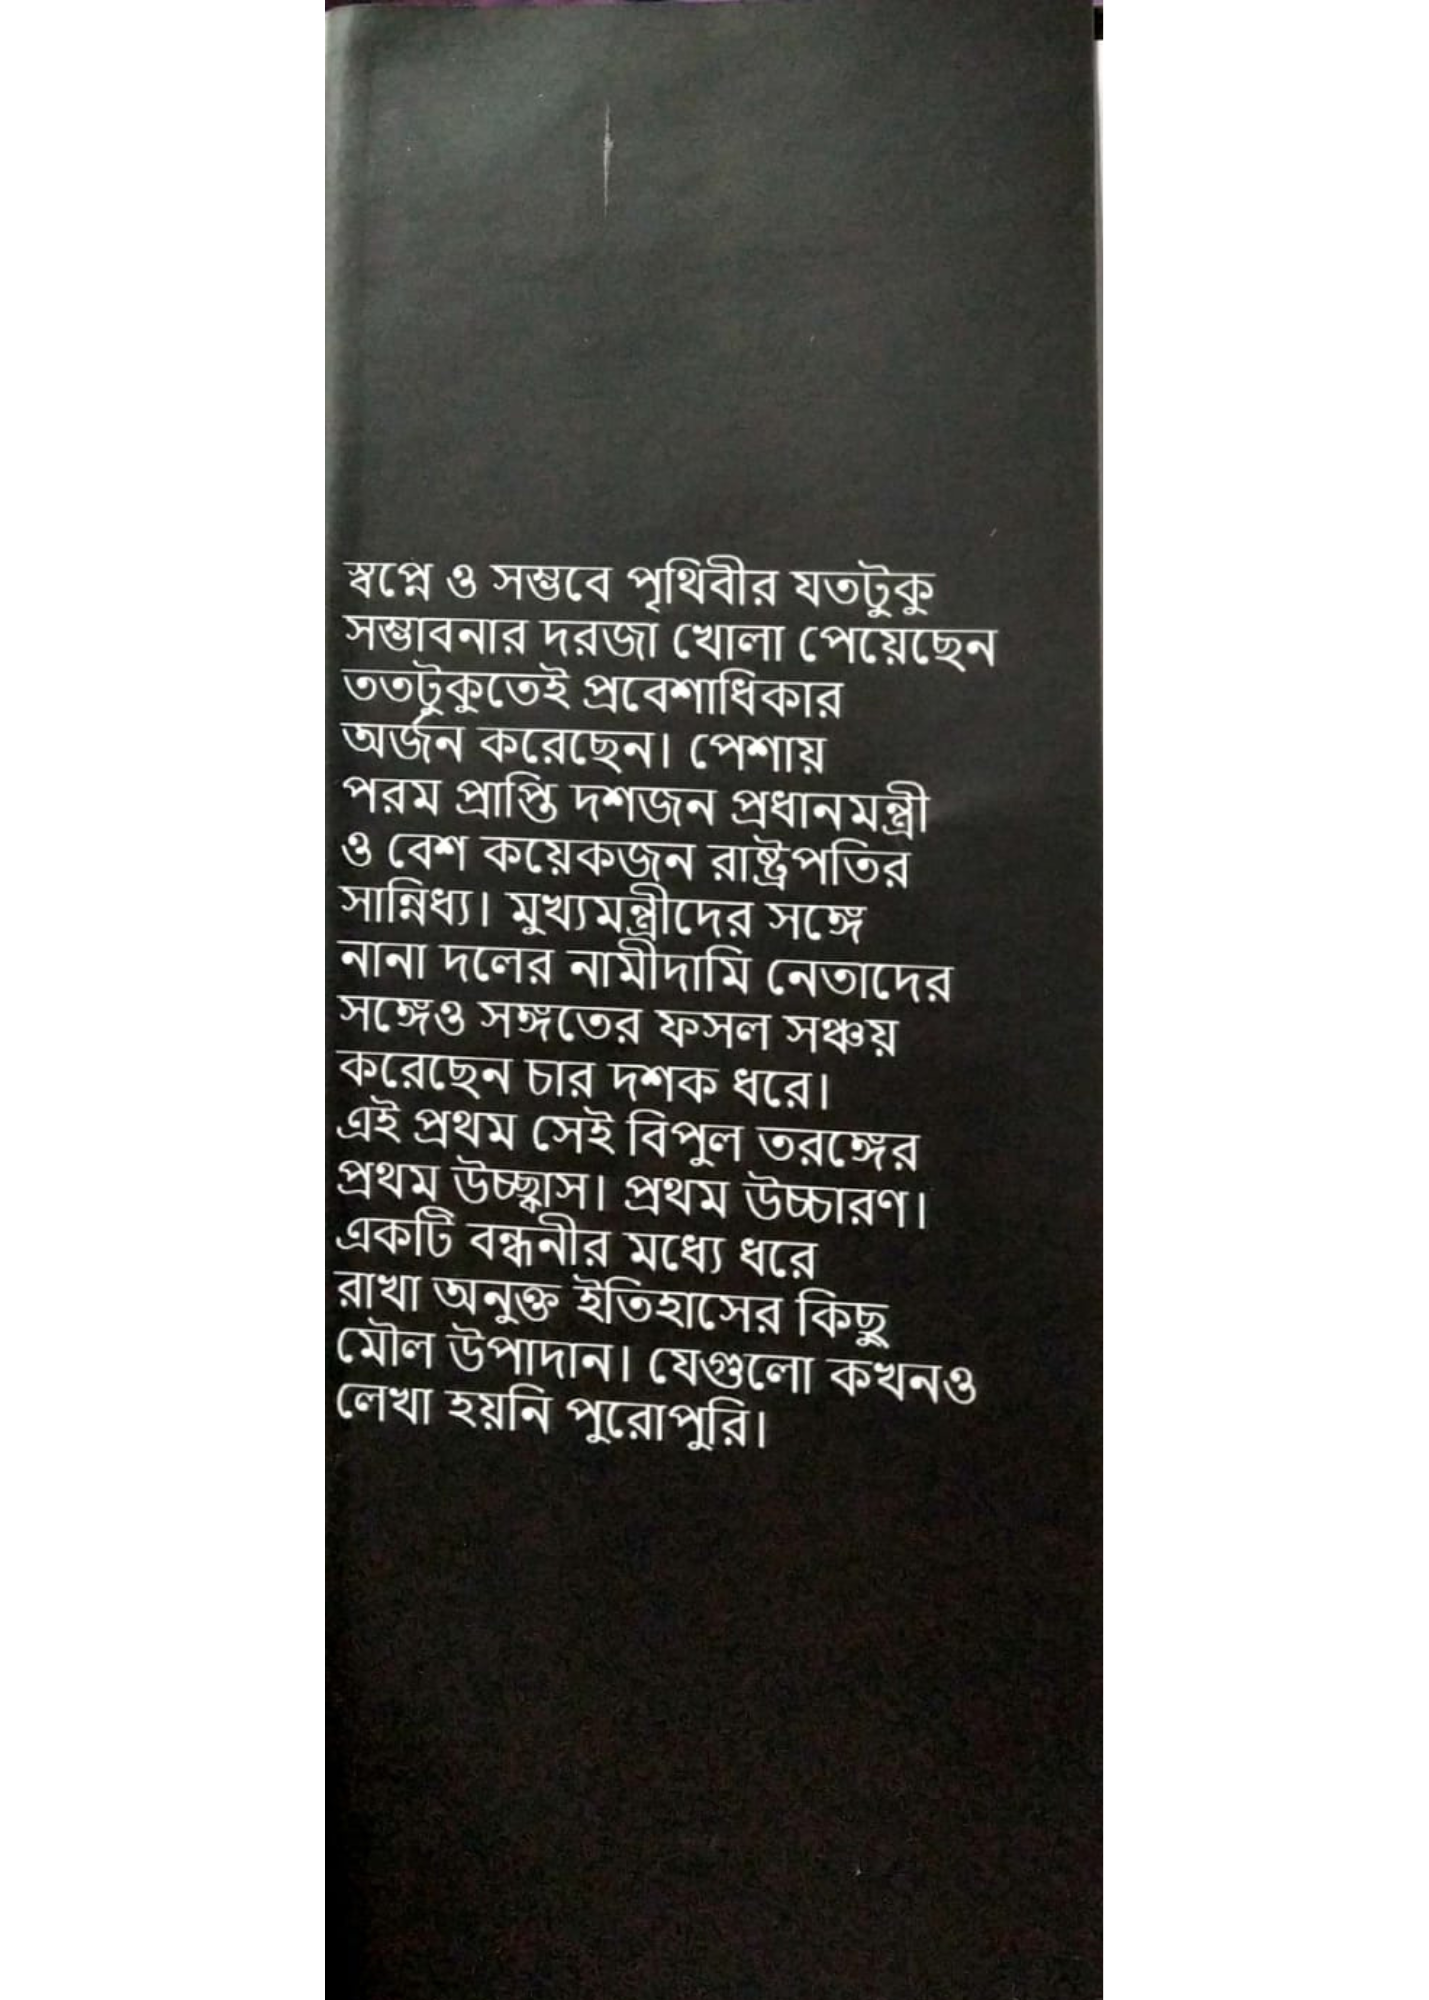 স্বপ্নে ও সম্ভবে পৃথিবীর যতটুকু
সম্ভাবনার দরজা খোলা পেয়েছেন
ততটুকুতেই প্রবেশাধিকার
অর্জন করেছেন। পেশায়
পরম প্রাপ্তি দশজন প্রধানমন্ত্রী
ও বেশ কয়েকজন রাষ্ট্রপতির
সান্নিধ্য। মুখ্যমন্ত্রীদের সঙ্গে
নানা দলের নামীদামি নেতাদের
সঙ্গেও সঙ্গতের ফসল সঞ্চয়
করেছেন চার দশক ধরে।
এই প্রথম সেই বিপুল তরঙ্গের
প্রথম উচ্ছ্বাস। প্রথম উচ্চারণ।
একটি বন্ধনীর মধ্যে ধরে
রাখা অনুক্ত ইতিহাসের কিছু
মৌল উপাদান। যেগুলো কখনও
লেখা হয়নি পুরোপুরি।